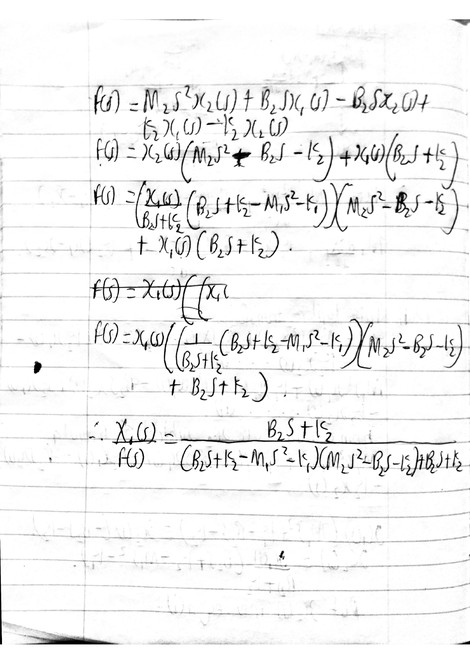 F(s) = M₂s²X₂(s) + B₂sX₁(s) - B₂sX₂(s) +
K₂X₁(s) - K₂X₂(s)
F(s) = X₂(s)(M₂s² - B₂s - K₂) + X₁(s)(B₂s + K₂)
F(s) = (X₁(s)/(B₂s+K₂) (B₂s + K₂ - M₁s² - K₁))(M₂s² - B₂s - K₂)
+ X₁(s)(B₂s + K₂).
F(s) = X₁(s)((X₁(
F(s) = X₁(s)((1/(B₂s+K₂) (B₂s + K₂ - M₁s² - K₁))(M₂s² - B₂s - K₂)
+ B₂s + K₂).
∴ X₁(s)/F(s) = B₂s + K₂ / (B₂s + K₂ - M₁s² - K₁)(M₂s² - B₂s - K₂) + B₂s + K₂